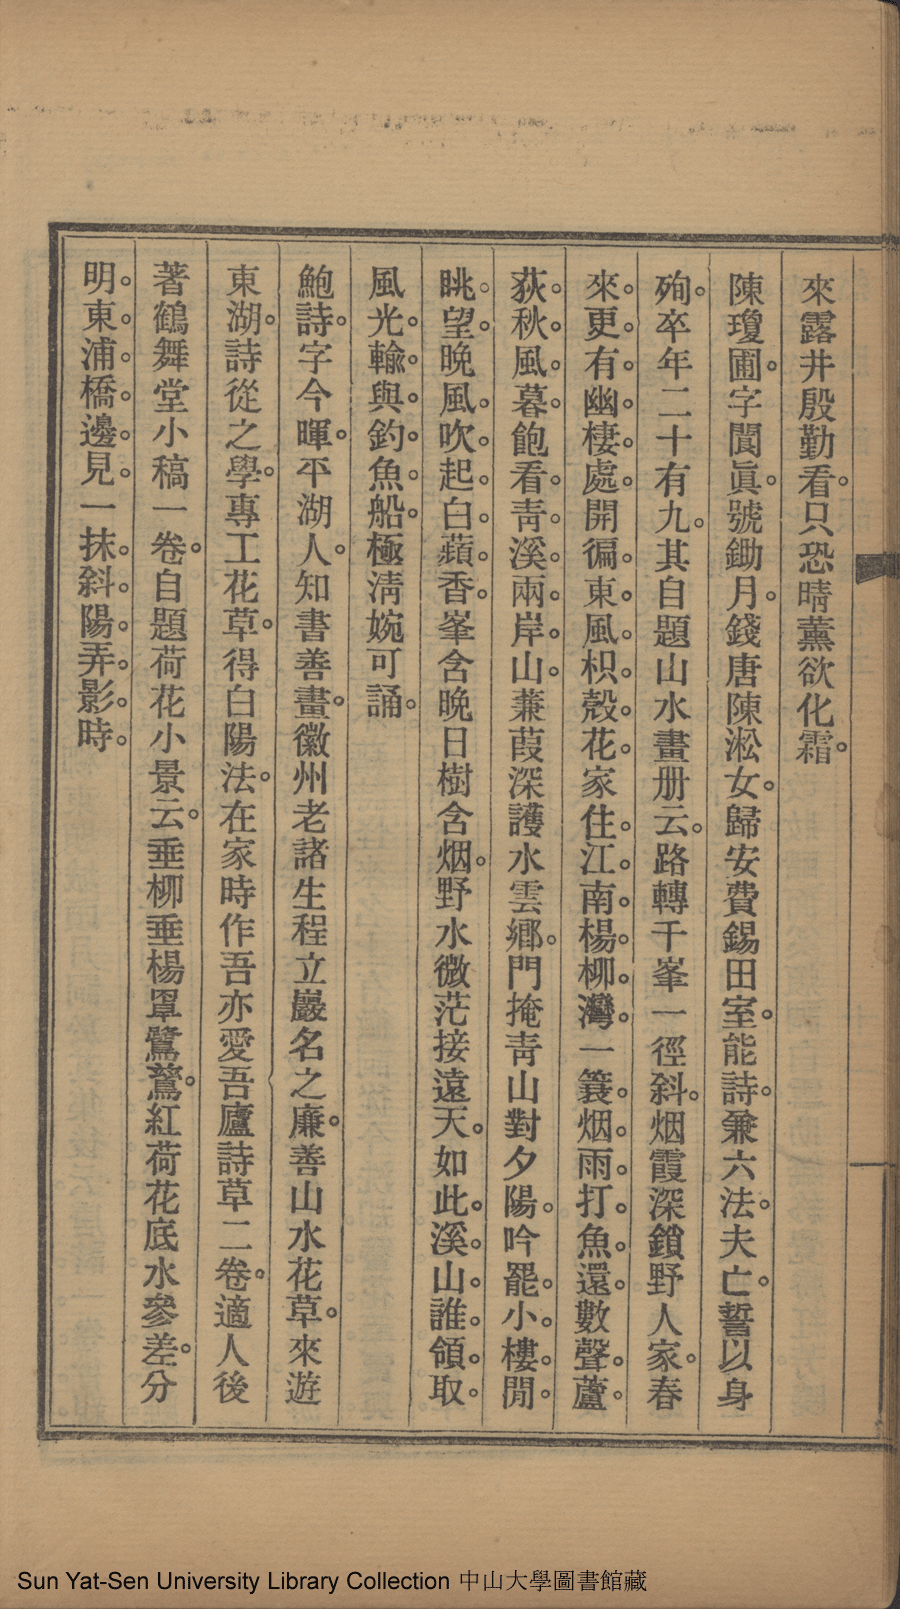 來露井殷勤看。只恐晴薰欲化霜。
陳瓊圃。字閬眞。號鋤月。錢唐陳淞女。歸安費錫田室。能詩。兼六法。夫亡。誓以身
殉。卒年二十有九。其自題山水畫册云。路轉千峯一徑斜。烟霞深鎖野人家。春
來。更。有。幽。棲。處。開徧。東。風。枳。殼。花。家住。江。南。楊。柳。灣。一簑。烟。雨。打。魚。還。數聲。蘆。
荻。秋。風。暮。飽看。靑。溪。兩。岸。山。蒹葭深護水雲鄉。門掩靑山對夕陽。吟罷。小。樓。閒。
眺。望。晚風。吹。起。白。蘋。香。峯含晚日樹含烟。野水微茫接遠天。如此。溪。山。誰。領。取。
風光。輸。與。釣。魚。船。極淸婉可誦。
鮑詩。字今暉。平湖人。知書善畫。徽州老諸生程立巖名之廉。善山水花草。來遊
東湖。詩從之學。專工花草。得白陽法。在家時作吾亦愛吾廬詩草二卷。適人後
著鶴舞堂小稿一卷。自題荷花小景云。垂柳垂楊罩鷺鷥。紅荷花底水參差。分
明。東。浦。橋。邊。見。一抹。斜。陽。弄。影。時。
Sun Yat-Sen University Library Collection 中山大學圖書館藏